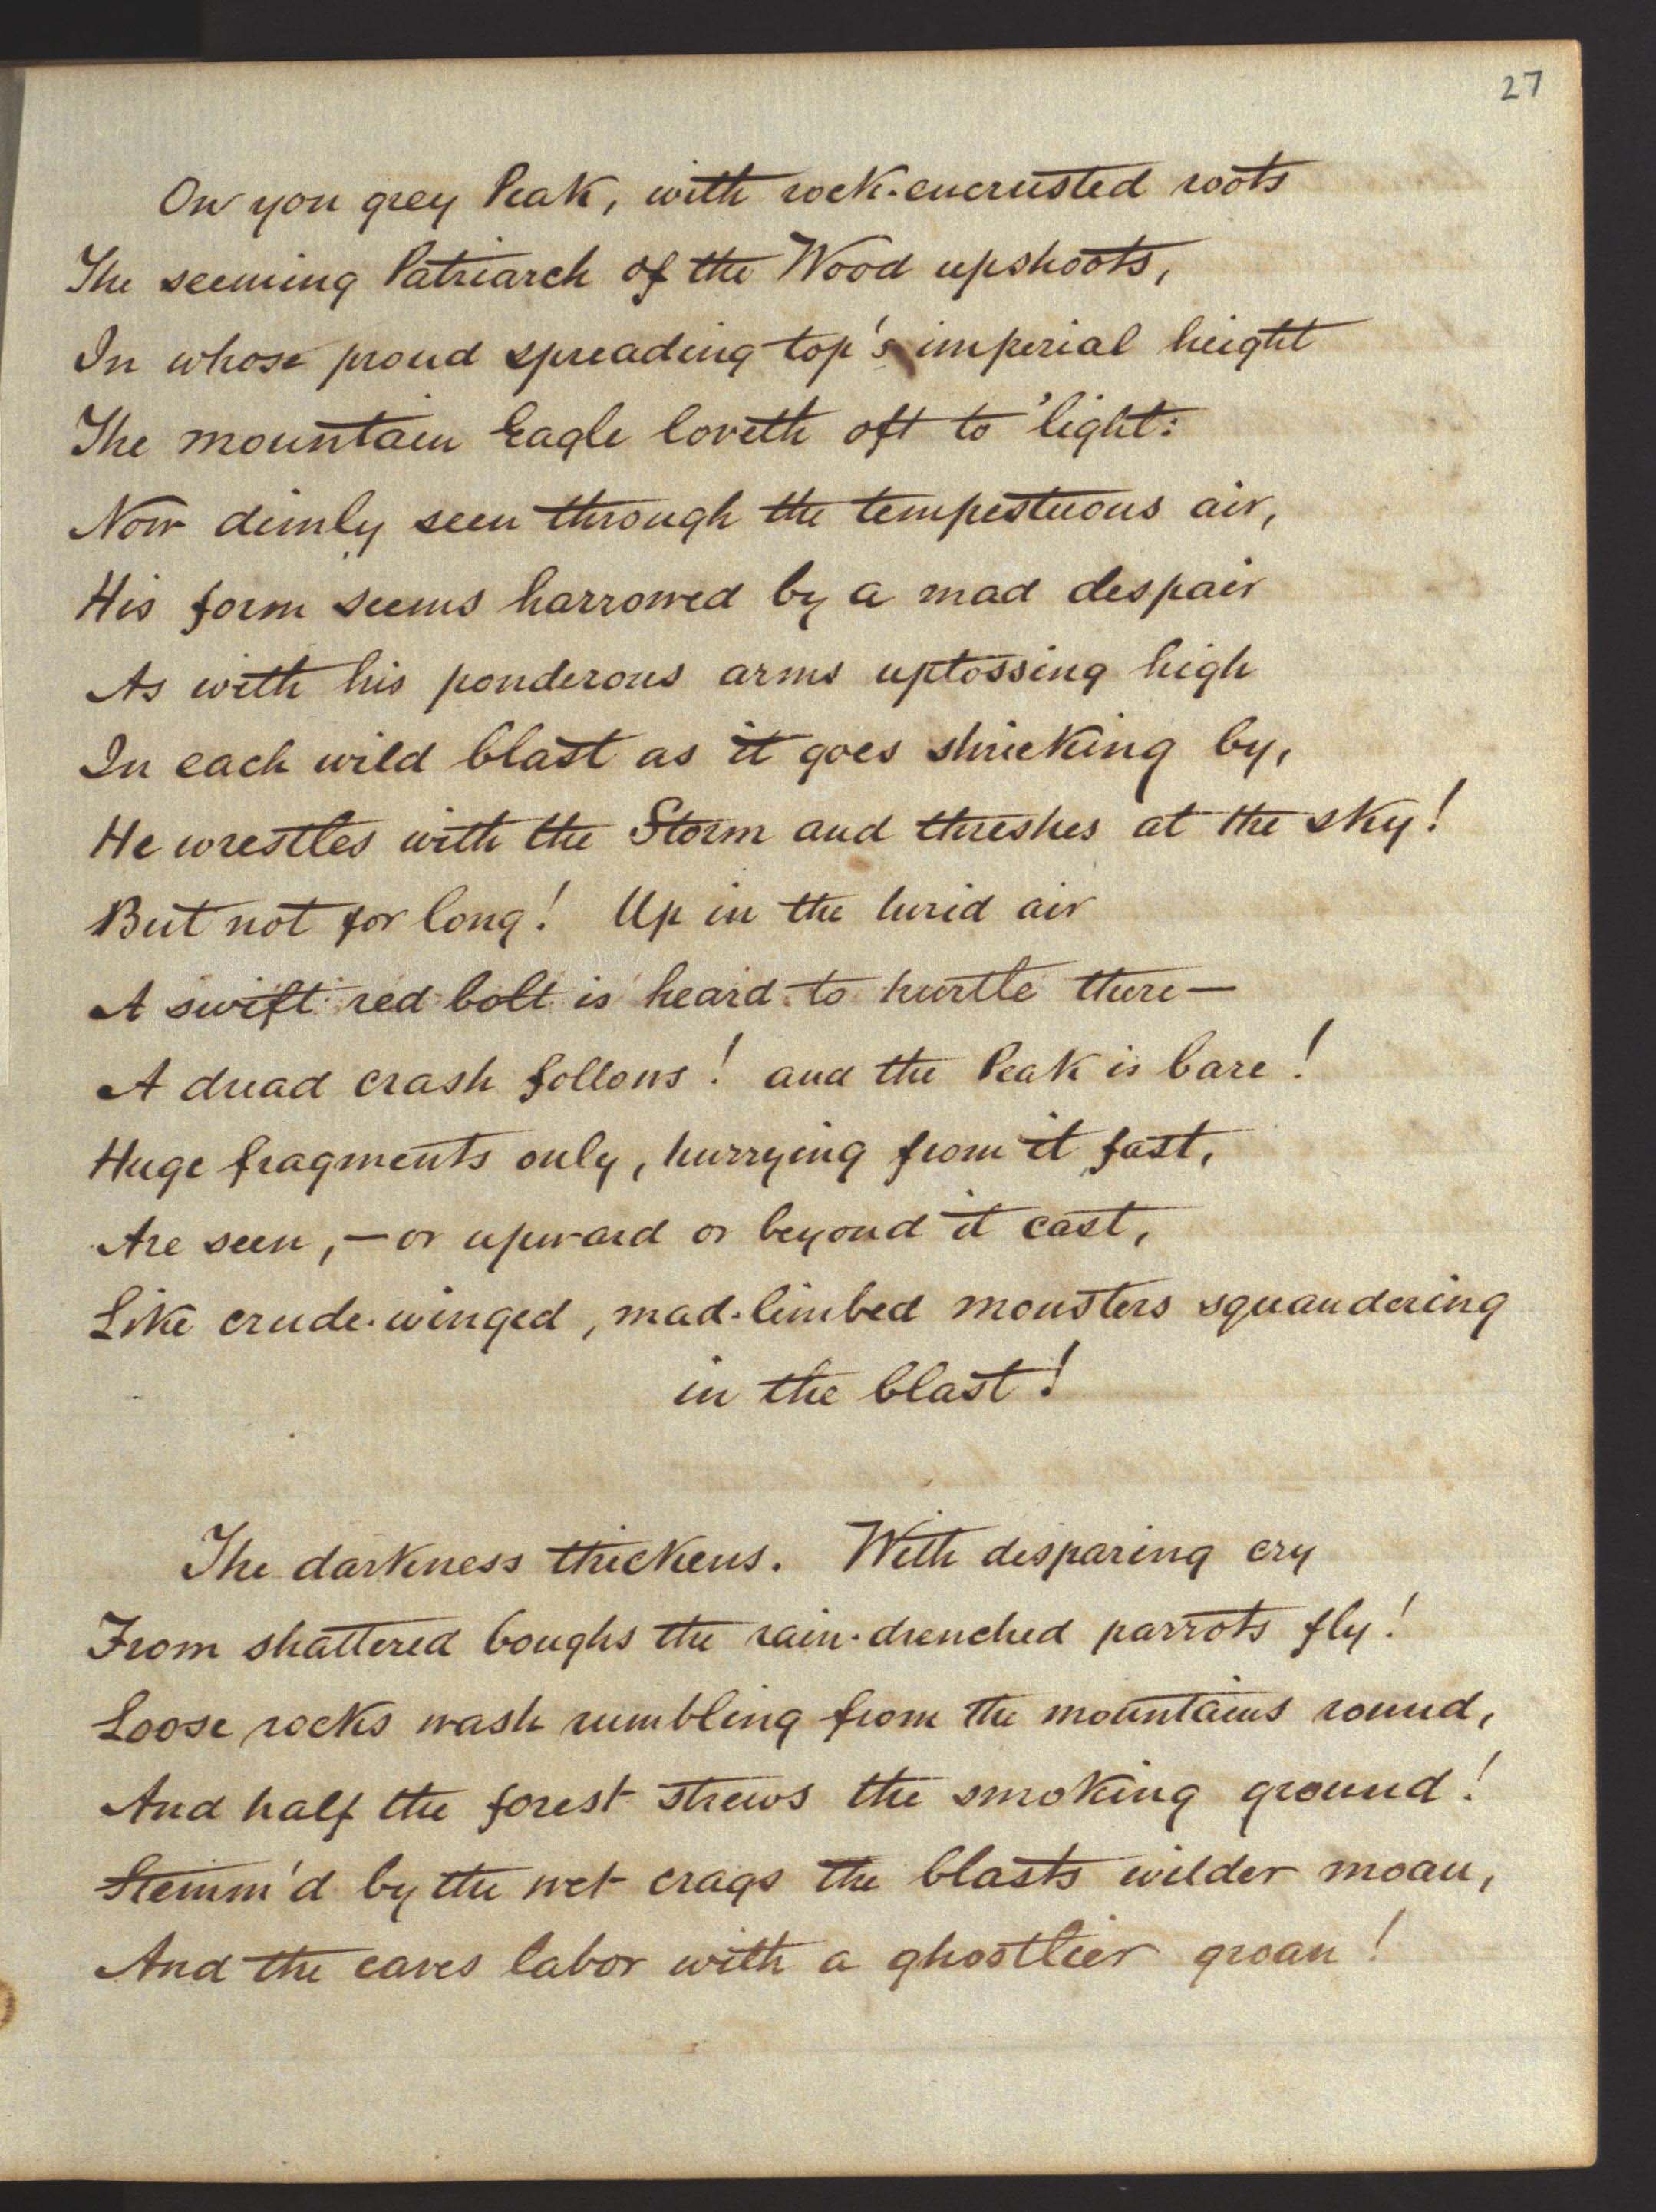 27
On yon grey Peak, with rock-encrusted roots
The seeming Patriarch of the Wood upshoots,
In whose proud spreading top's imperial height
The mountain Eagle loveth oft to 'light:
Now dimly seen through the tempestuous air,
His form seems harrowed by a mad despair
As with his ponderous arms uptossing high
In each wild blast as it goes shrieking by,
He wrestles with the Storm and threshes at the sky!
But not for long! Up in the lurid air
A swift red bolt is heard to hurtle there—
A dread crash follows! and the Peak is bare!
Huge fragments only, hurrying from it fast,
Are seen,—or upward or beyond it cast,
Like crude-winged, mad-limbed monsters squandering
in the blast!
The darkness thickens. With disparing cry
From shattered boughs the rain-drenched parrots fly!
Loose rocks wash rumbling from the mountains round,
And half the forest strews the smoking ground!
Stemm'd by the wet crags the blasts wilder moan,
And the caves labor with a ghostlier groan!